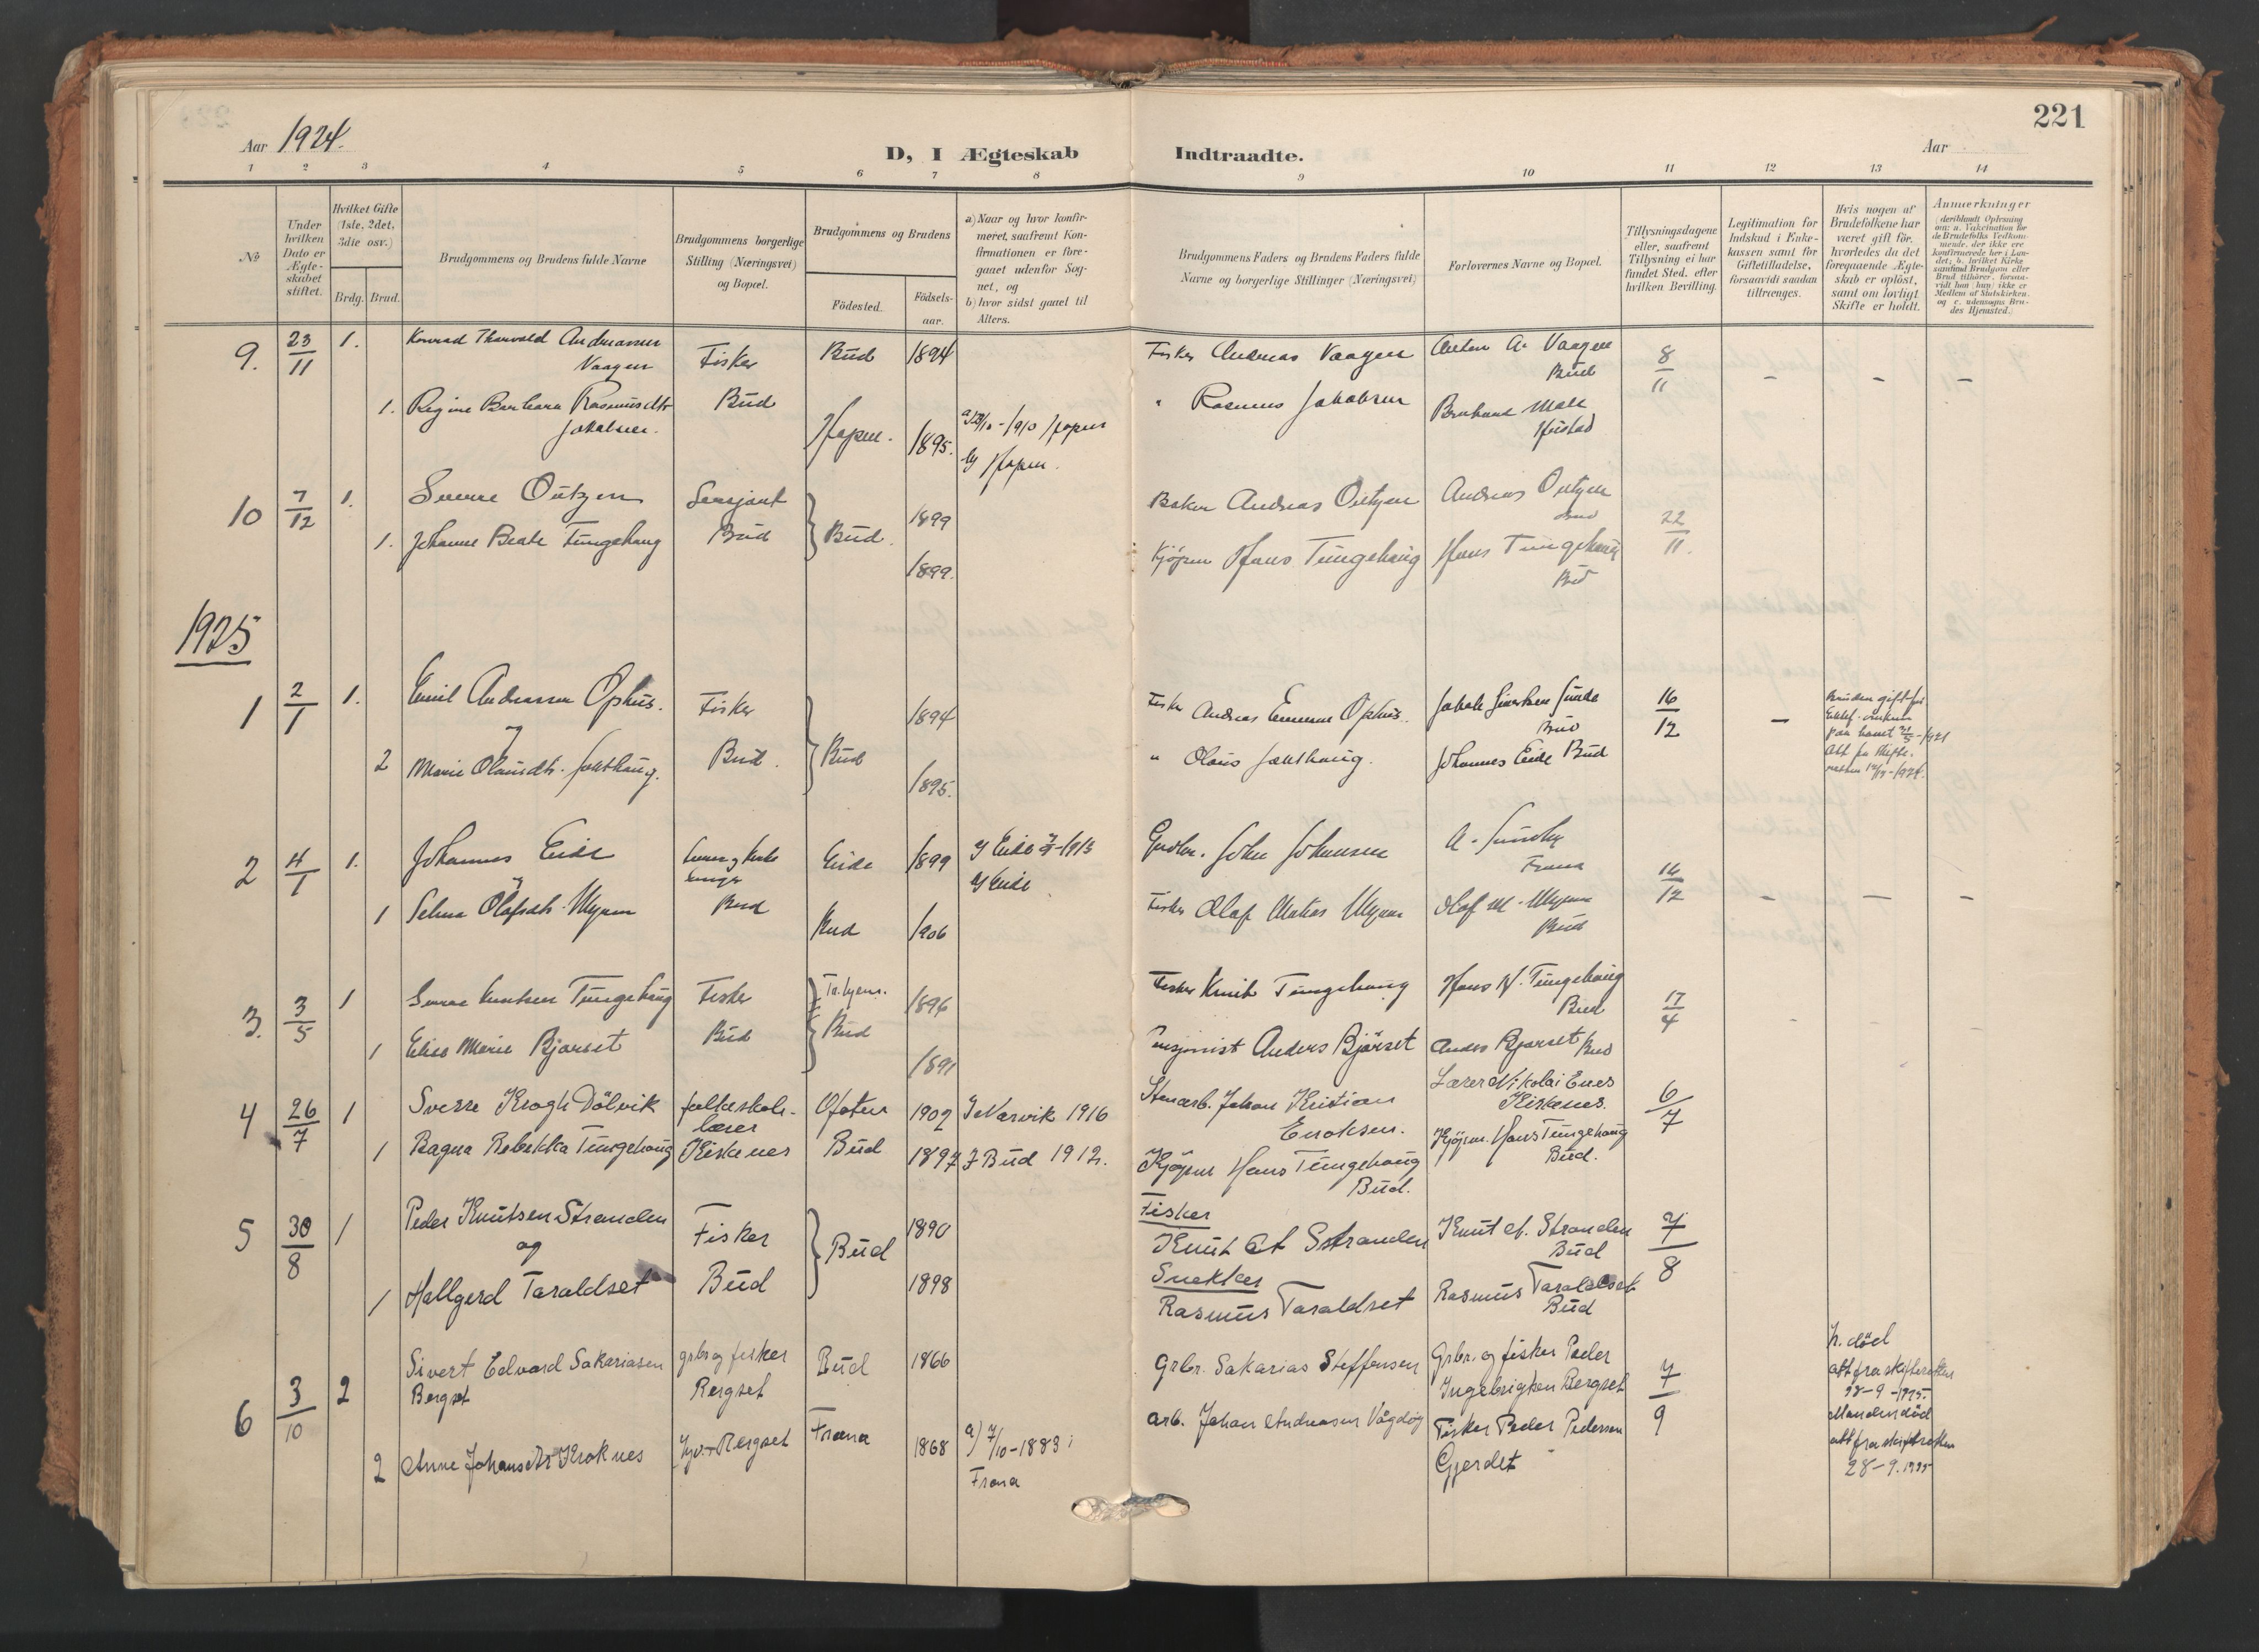 221
Aar 1924.
D, I Ægteskab Indtraadte.
Aar
1 2 3 4 5 6 7 8 9 10 11 12 13 14
No
Under hvilken Dato er Ægteskabet stiftet.
Hvilket Gifte (1ste, 2det, 3die osv.)
Brdg. Brud.
Brudgommens og Brudens fulde Navne
Brudgommens borgerlige Stilling (Næringsvei) og Bopæl.
Brudgommens og Brudens
Fødested. Fødselsaar.
a) Naar og hvor konfirmeret, saafremt Konfirmationen er foregaaet udenfor Sognet, og
b) hvor sidst gaaet til Alters.
Brudgommens Faders og Brudens Faders fulde Navne og borgerlige Stillinger (Næringsvei)
Forlovernes Navne og Bopæl.
Tillysningsdagene eller, saafremt Tillysning ei har fundet Sted, efter hvilken Bevilling.
Legitimation for Indskud i Enkekassen samt for Giftetilladelse, forsaavidt saadan tiltrænges.
Hvis nogen af Brudefolkene har været gift før, hvorledes da det foregaaende Ægteskab er opløst, samt om lovligt Skifte er holdt.
Anmærkninger
9. 23/11 1. Konrad Thorvald Andreassen Fisker Bud 1894 Fisker Andreas Vaagen Anton A. Vaagen 8/11 - - -
Vaagen Bud
1. Regine Barbara Rasmusdtr Bud Hopen. 1895. 1910 Hopen " Rasmus Jakobsen Bernhard Male
Jakobsen. b) Hopen. Hustad
10 7/12 1. Sverre Outzen Sersjant 1899 Baker Andreas Outzen Andreas Outzen 22/11.
Bud
1. Johanne Beate Tungehaug Bud Bud. 1899. Kjøpm Hans Tungehaug Hans Tungehaug
Bud
1925
1 2/1 1. Emil Andreassen Ophus. Fisker 1894 Fisker Andreas Ophus. Jakob Sunde 16/12 - Bruden gift før
og Bud
2 Marie Olausdtr. Bud. Bud 1895. " Olaus Johannes Eide Bud
2 4/1 1. Johannes Eide Eide 1899 Eide 1913 John Johansen A. 16/12 - - -
og Eide Fræna
1 Selma Olafsdtr. Myren Bud Bud 1906 Fisker Olaf Myren Olaf M. Myren
Bud
3. 3/5 1 Knutsen Tungehaug Fisker 1896 Fisker Knut Tungehaug Hans Tungehaug 17/4
Bud
1 Elise Marie Bjørset Bud Bud 1891 Pensjonist Anders Bjørset Anders Bjørset Bud
4 26/7 1 Sverre Krogh Dölvik folkeskole- Ofoten 1902 I Narvik 1916 Stenarb. Johan Kristian Lærer Nikolai Enes 6/7
lærer Enoksen. Kirkenes.
1 Ragna Rebekka Tungehaug Kirkenes Bud 1897 I Bud 1912. Kjøpm Hans Tungehaug Kjøpm. Hans Tungehaug
Bud. Bud.
5 30/8 1 Peder Knutsen Stranden Fisker 1890 Fisker
og Bud Knut A Stranden Knut A. Stranden 7/8
Bud
1 Hallgerd Taraldset Bud 1898 Snekker
Rasmus Taraldset Rasmus Taraldset
Bud
6 3/10 2 Sivert Edvard Sakariasen grbr og fisker Bud 1866 Grbr. Sakarias Steffensen Grbr. og fisker Peder 7/9 h. død
Bergset Bergset Ingebrigtsen Bergset att fra skifteretten
28-9-1925.
2 Anne Johansdtr Kroknes Bergset Fræna 1868 a) 7/10-1883 i arb. Johan Andreasen Vågdøy Fisker Peder Pedersen Manden død
Fræna Gjerdet att fra skifteretten
28-9.1925